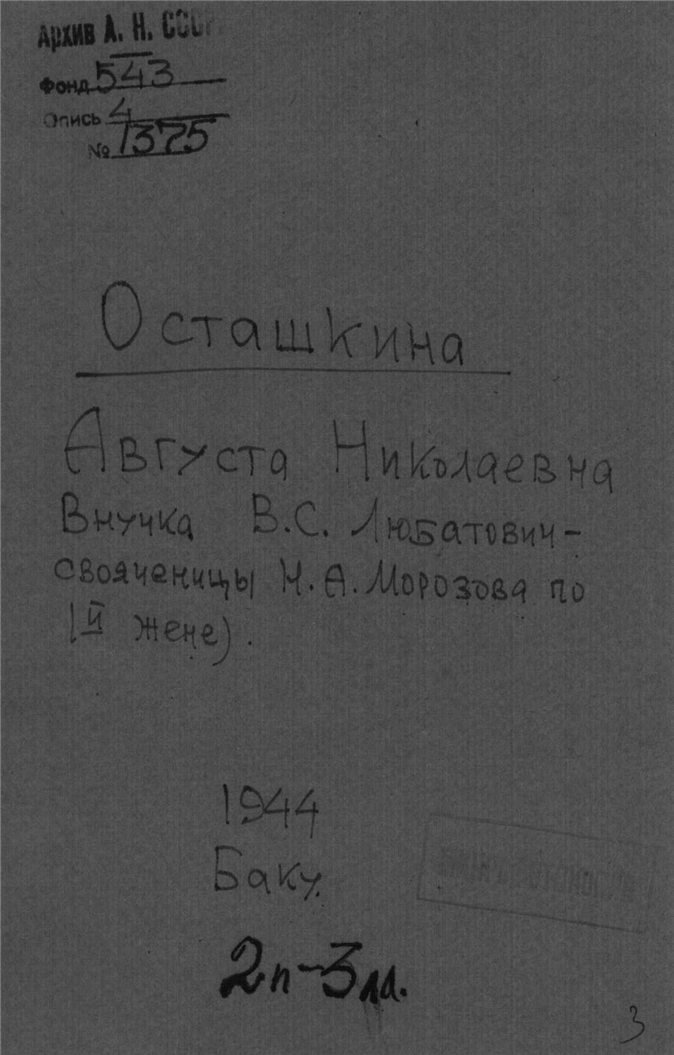 Архив А. Н. СССР
Фонд 543
Опись 4
№ 1375
Осташкина
Августа Николаевна
Внучка В.С. Любатович-
свояченицы Н.А. Морозова по
1й жене).
1944
Баку.
2п-3лл.
3